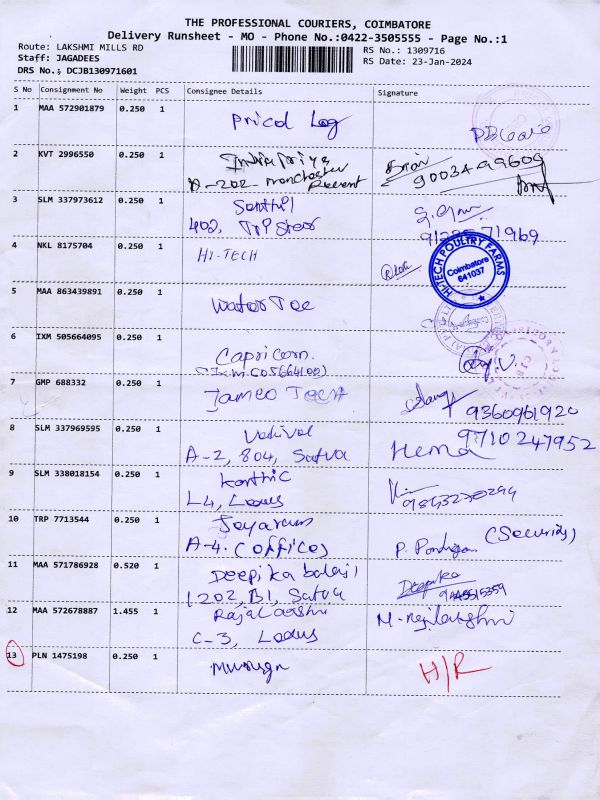 THE PROFESSIONAL COURIERS, COIMBATORE
Delivery Runsheet - MO - Phone No.:0422-3505555 - Page No.:1
Route: LAKSHMI MILLS RD
RS No.: 1309716
Staff: JAGADEES
RS Date: 23-Jan-2024
DRS No.: DCJB130971601
S No Consignment No Weight PCS Consignee Details Signature
1 MAA 572901879 0.250 1 Pricol Log
2 KVT 2996550 0.250 1 Indiapriya
A-202 manchester
9003499609
3 SLM 337973612 0.250 1 Senthil
402,
71969
4 NKL 8175704 0.250 1 HI-TECH
HI-TECH POULTRY FARMS
Coimbatore
641037
5 MAA 863439891 0.250 1 Water Tec
6 IXM 505664095 0.250 1 Capricorn.
(IXM 505664100)
7 GMP 688332 0.250 1 Jameo Tech
9360961920
8 SLM 337969595 0.250 1 Vadivel Hema 9710247952
A-2, 804, Satva
9 SLM 338018154 0.250 1 Karthic
L4, Lotus
10 TRP 7713544 0.250 1 Jayaram (Security)
A-4. (Office) P.
11 MAA 571786928 0.520 1 Deepika balaji Deepika
1202, B1, Satva
12 MAA 572678887 1.455 1 Rajalakshmi M. Rajalakshmi
C-3, Lotus
13 PLN 1475198 0.250 1 Murugn H/R